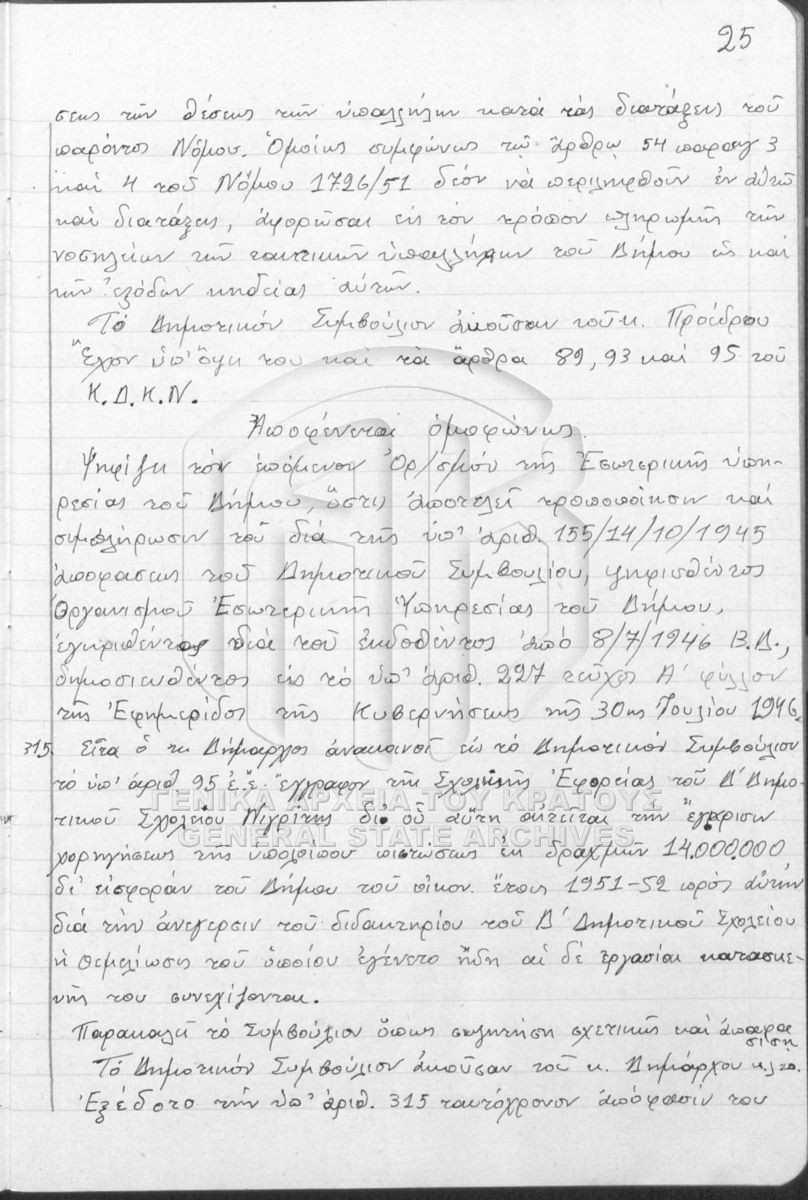 25
σεως τῶν θέσεων τῶν ὑπαλλήλων κατά τάς διατάξεις τοῦ
παρόντος Νόμου. Ὁμοίως συμφώνως τῷ ἄρθρῳ 54 παραγ 3
καί 4 τοῦ Νόμου 1726/51 δέον νά περιληφθοῦν ἐν αὐτῷ
καί διατάξεις, ἀφορῶσαι εἰς τόν τρόπον πληρωμῆς τῶν
νοσηλείων τῶν τακτικῶν ὑπαλλήλων τοῦ Δήμου ὡς καί
τῶν ἐξόδων κηδείας αὐτῶν.
Τό Δημοτικόν Συμβούλιον ἀκοῦσαν τοῦ κ. Προέδρου
Ἔχον ὑπ' ὄψη του καί τά ἄρθρα 89, 93 καί 95 τοῦ
Κ.Δ.Κ.Ν.
Ἀποφαίνεται ὁμοφώνως.
Ψηφίζει τόν ἑπόμενον Ὀργ/σμόν τῆς Ἐσωτερικῆς ὑπη-
ρεσίας τοῦ Δήμου, ὅστις ἀποτελεῖ τροποποίησιν καί
συμπλήρωσιν τοῦ διά τῆς ὑπ' ἀριθ. 155/14/10/1945
ἀποφάσεως τοῦ Δημοτικοῦ Συμβουλίου, ψηφισθέντος
Ὀργανισμοῦ Ἐσωτερικῆς Ὑπηρεσίας τοῦ Δήμου,
ἐγκριθέντος διά τοῦ ἐκδοθέντος ἀπό 8/7/1946 Β.Δ.,
δημοσιευθέντος εἰς τό ὑπ' ἀριθ. 227 τεῦχος Α' φύλλον
τῆς Ἐφημερίδος τῆς Κυβερνήσεως τῆς 30ης Ἰουλίου 1946.
315. Εἶτα ὁ κ. Δήμαρχος ἀνακοινοῖ εἰς τό Δημοτικόν Συμβούλιον
τό ὑπ' ἀριθ. 95 ἐ.ἔ. ἔγγραφον τῆς Σχολικῆς Ἐφορείας τοῦ Β' Δημο-
τικοῦ Σχολείου Νιγρίτης δι' οὗ αὕτη αἰτεῖται τήν ἔγκρισιν
χορηγήσεως τῆς ὑπολοίπου πιστώσεως ἐκ δραχμῶν 14.000.000
δι' εἰσφοράν τοῦ Δήμου τοῦ οἰκον. ἔτους 1951-52 πρός αὐτήν
διά τήν ἀνέγερσιν τοῦ διδακτηρίου τοῦ Β' Δημοτικοῦ Σχολείου
ἡ θεμελίωσις τοῦ ὁποίου ἐγένετο ἤδη αἱ δέ ἐργασίαι κατασκε-
υῆς του συνεχίζονται.
Παρακαλεῖ τό Συμβούλιον ὅπως συζητήση σχετικῶς καί ἀποφα
σίση
Τό Δημοτικόν Συμβούλιον ἀκοῦσαν τοῦ κ. Δημάρχου κ.λπ.
Ἐξέδοτο τήν ὑπ' ἀριθ. 315 ταυτόχρονον ἀπόφασίν του
ΓΕΝΙΚΑ ΑΡΧΕΙΑ ΤΟΥ ΚΡΑΤΟΥΣ
GENERAL STATE ARCHIVES